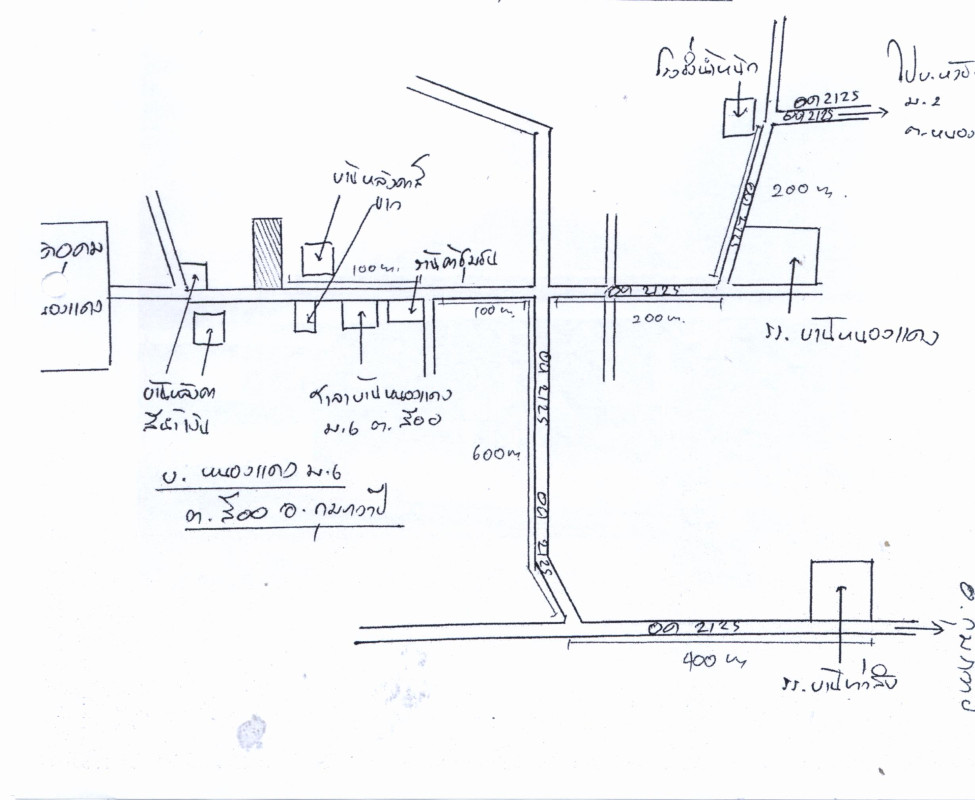 โรงชั่งน้ำหนัก
อด 2125
อด 2125
ม. 2
ต. หนอง
200 ม.
อด 2125
บ้านหลังคาสี
ขาว
100 ม.
ร้านค้าชุมชน
หนองแดง
อด 2125
100 ม.
200 ม.
รร. บ้านหนองแดง
บ้านหลังคา
สีน้ำเงิน
ศาลาบ้านหนองแดง
ม.6 ต. สีออ
อด 2125
600 ม
บ. หนองแดง ม.6
ต. สีออ อ. กุมภวาปี
อด 2125
อด 2125
400 ม
รร. บ้านท่าลิ้น